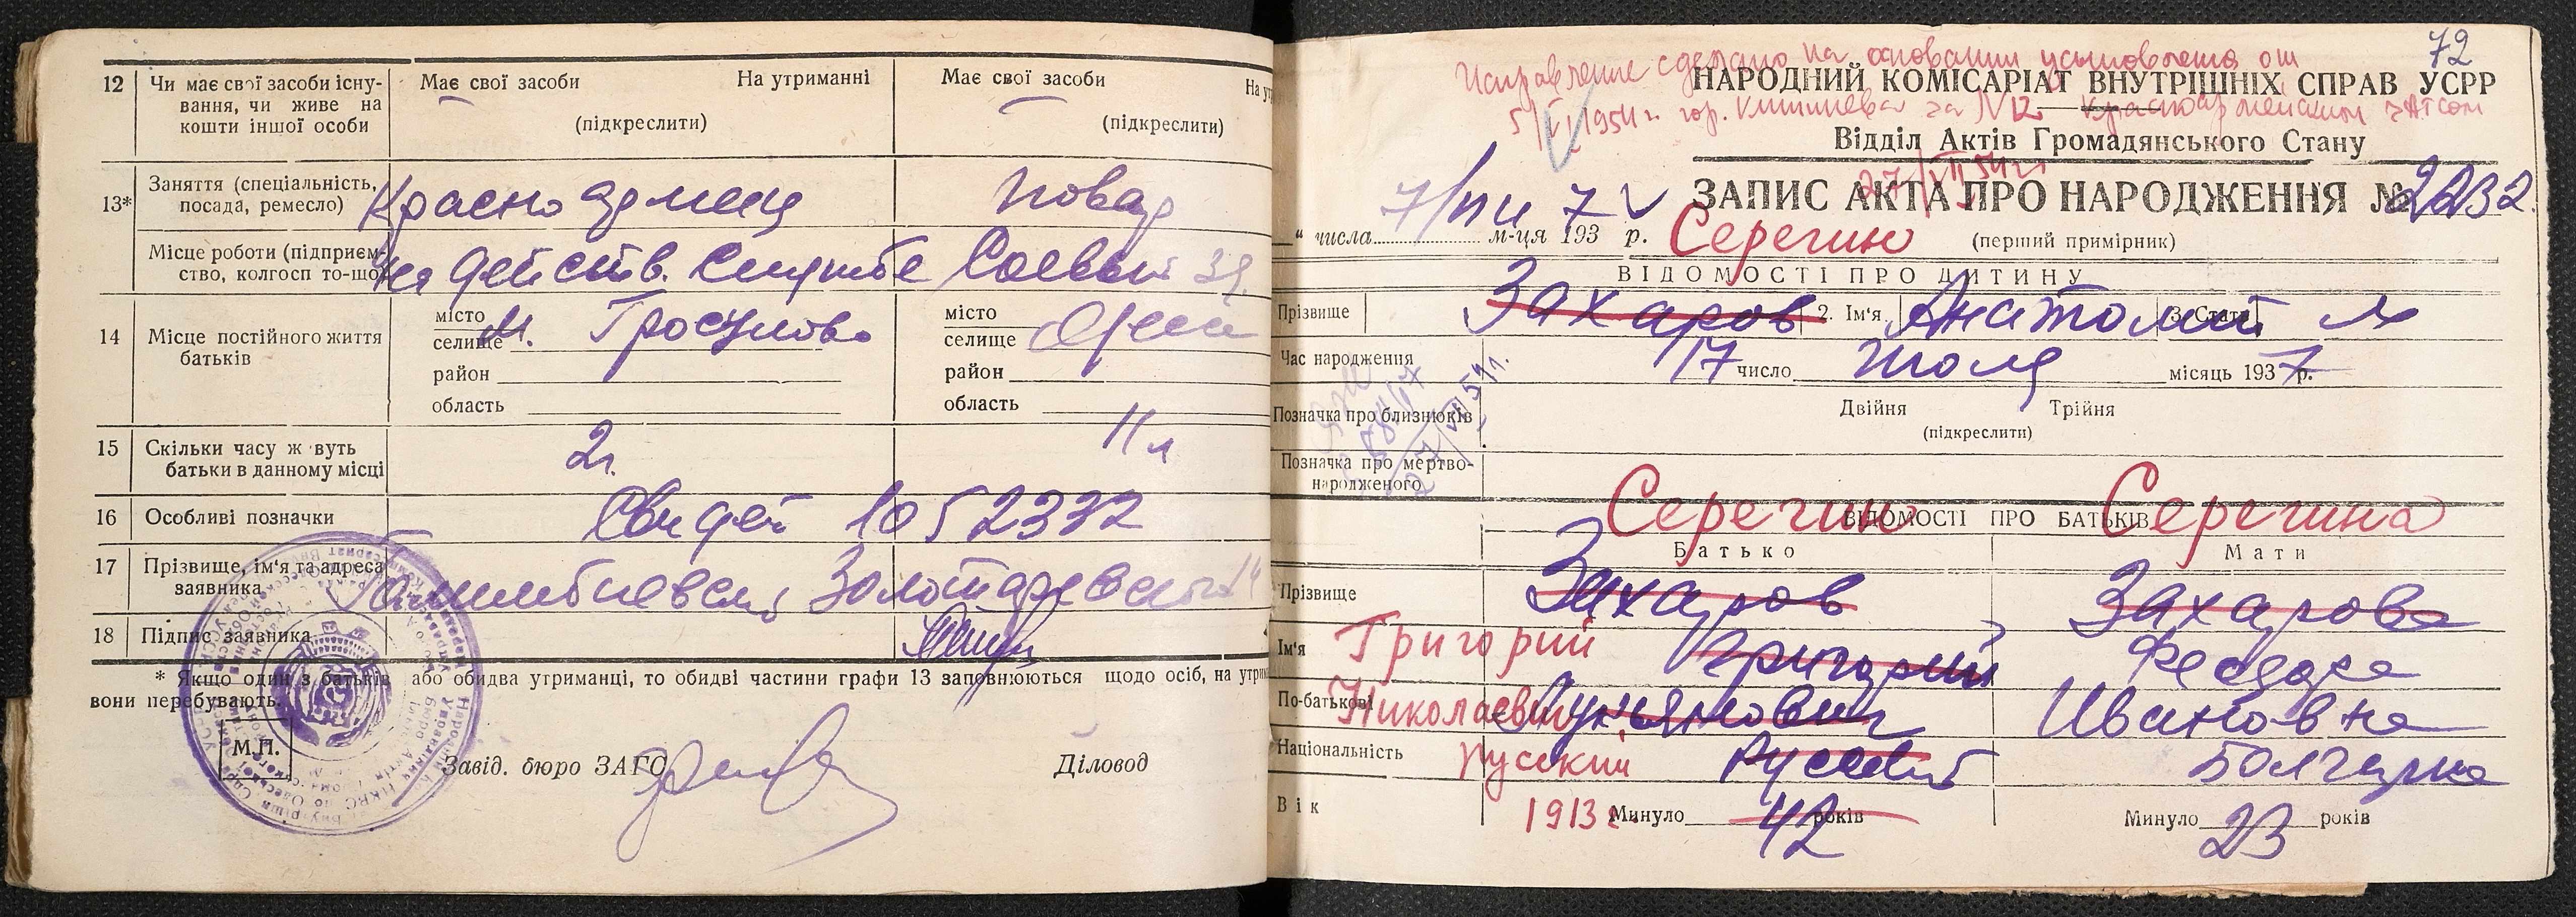 12 Чи має свої засоби існу- Має свої засоби На утриманні Має свої засоби
вання, чи живе на
кошти іншої особи (підкреслити) (підкреслити)
13* Заняття (спеціальність, Красноармеец Повар
посада, ремесло)
Місце роботи (підприєм- на действ. Службе
ство, колгосп то-що)
14 Місце постійного життя місто місто
батьків селище М. Гросулово селище Одесса
район район
область область
15 Скільки часу ж вуть 2 г. 11 л
батьки в данному місці
16 Особливі позначки Свидет 1052332
17 Прізвище, ім'я та адреса
заявника
18 Підпис заявника
* Якщо один з батьків або обидва утриманці, то обидві частини графи 13 заповнюються щодо осіб, на
вони перебувають.
М.П.
Завід. бюро ЗАГС Діловод
72
Исправление сделано на основании усыновления от
НАРОДНИЙ КОМІСАРІАТ ВНУТРІШНІХ СПРАВ УСРР
1954 г. гор. за N 12
Відділ Актів Громадянського Стану
27/VII 54 г.
ЗАПИС АКТА ПРО НАРОДЖЕННЯ № 2232
" числа 7 м-ця 193 7 р. Серегин (перший примірник)
ВІДОМОСТІ ПРО ДИТИНУ
Прізвище Захаров 2. Ім'я Анатолий 3. Стать м
Час народження 17 число Июля місяць 1937 р.
Позначка про близнюків Двійня Трійня
(підкреслити)
Позначка про мертво-
народженого
Серегин Серегина
ВІДОМОСТІ ПРО БАТЬКІВ
Батько Мати
Прізвище Захаров Захарова
Ім'я Григорий Григорий Федора
По-батькові Николаевич Лукьянович Ивановна
Національність русский Русский Болгарка
Вік 1913 г. Минуло 42 років Минуло 23 років